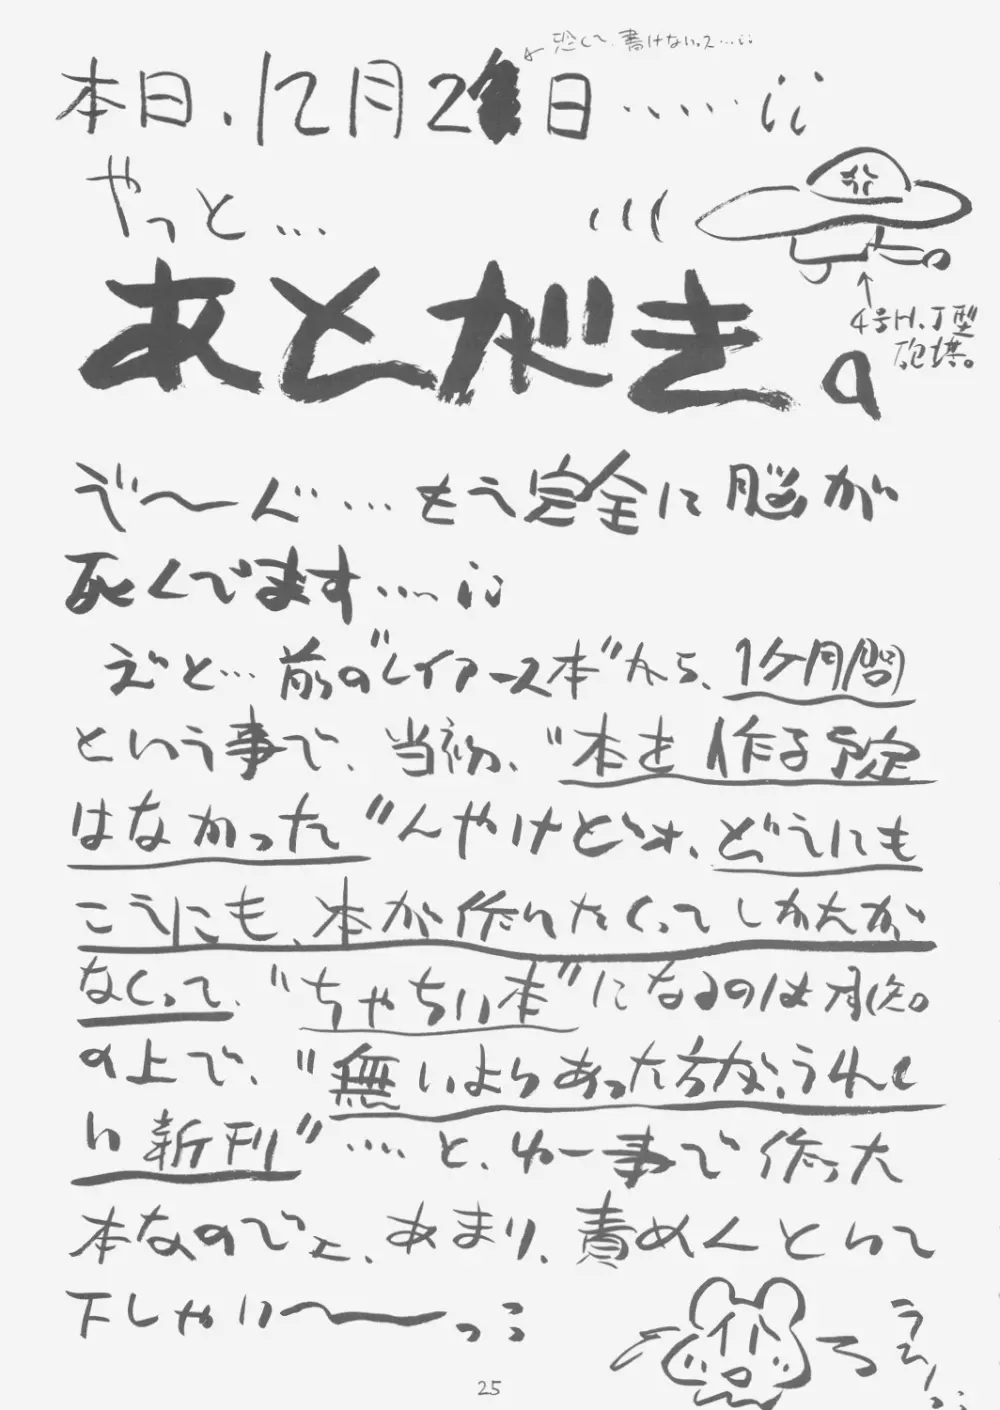 恐くて、書けないっス…;;
本日、12月2 日……;;
やっと…
あとがき。
4号H.J型
砲塔。
で〜ん゛…もう完全に脳が
死んでます…;;
えと…前の"レイアース本"から、1ケ月間
という事で、当初、"本を作る予定
はなかった"んやけど、どうにも
こうにも、本が作りたくってしかたが
なくって、"ちゃちい本"になるのは承知。
の上で、"無いよりあった方が、うれし
い新刊"…と、ゆー事で作った
本なので、あまり、責めんといて
下しゃい〜っ;;
25